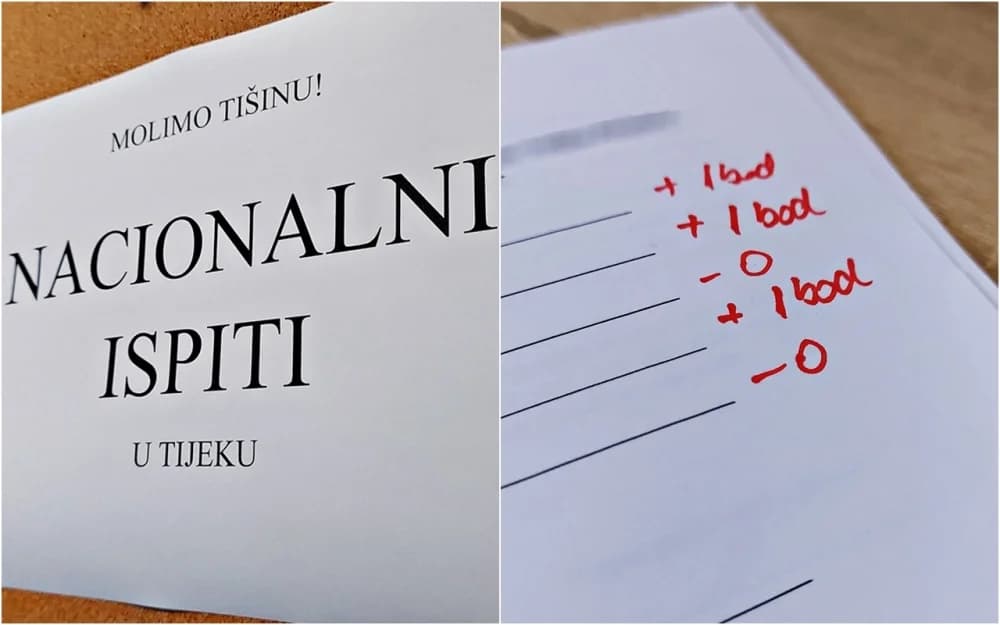 MOLIMO TIŠINU!
NACIONALNI
ISPITI
U TIJEKU
+ 1 bod
+ 1 bod
- 0
+ 1 bod
- 0